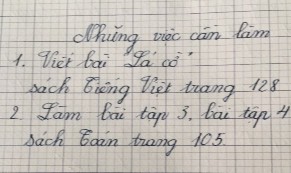 Những việc cần làm
1. Viết bài "Lá cờ"
sách Tiếng Việt trang 128
2. Làm bài tập 3, bài tập 4
sách Toán trang 105.